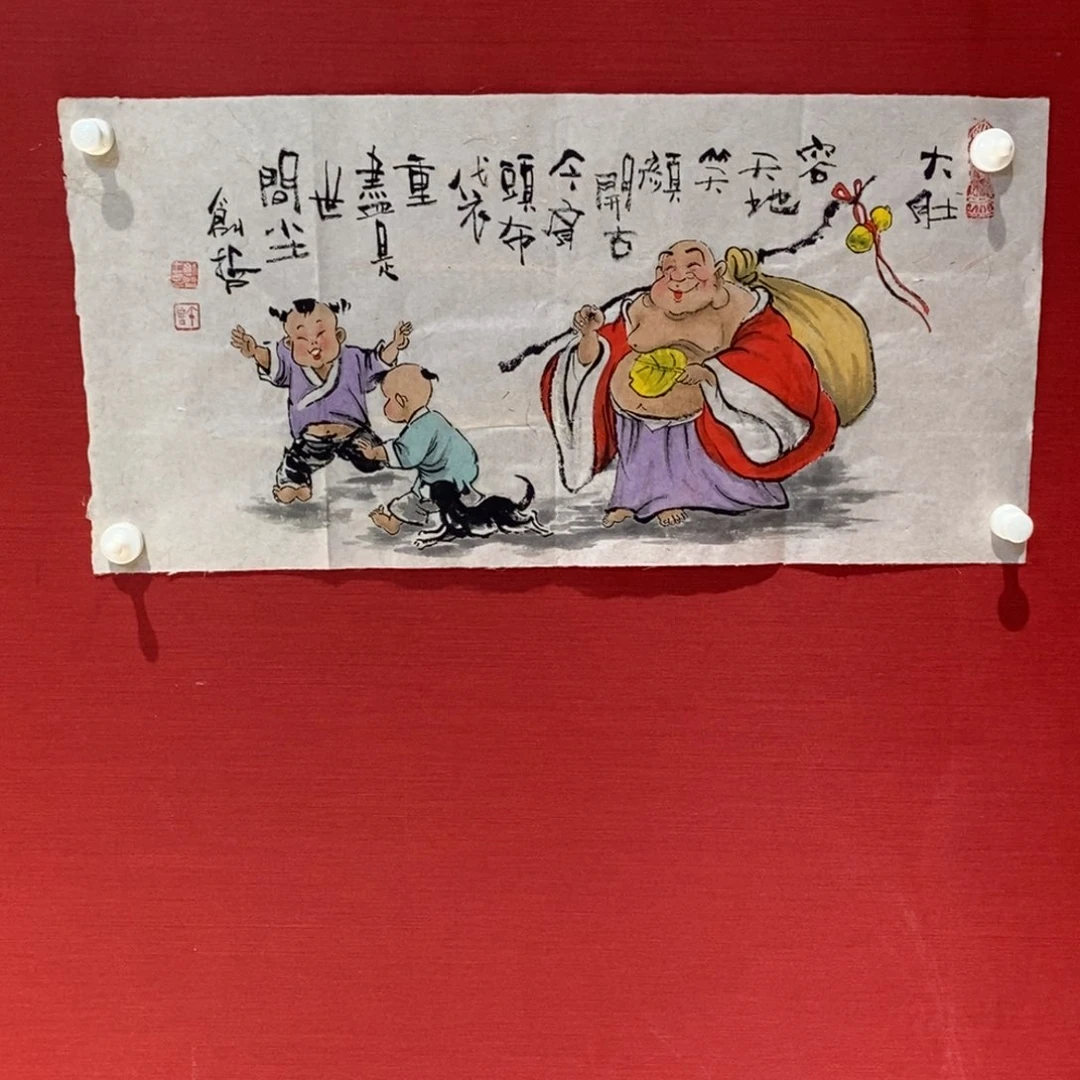 大肚
容
天地
笑
顏
開古
今肩
頭布
袋
重
盡是
世
間尘
創哲